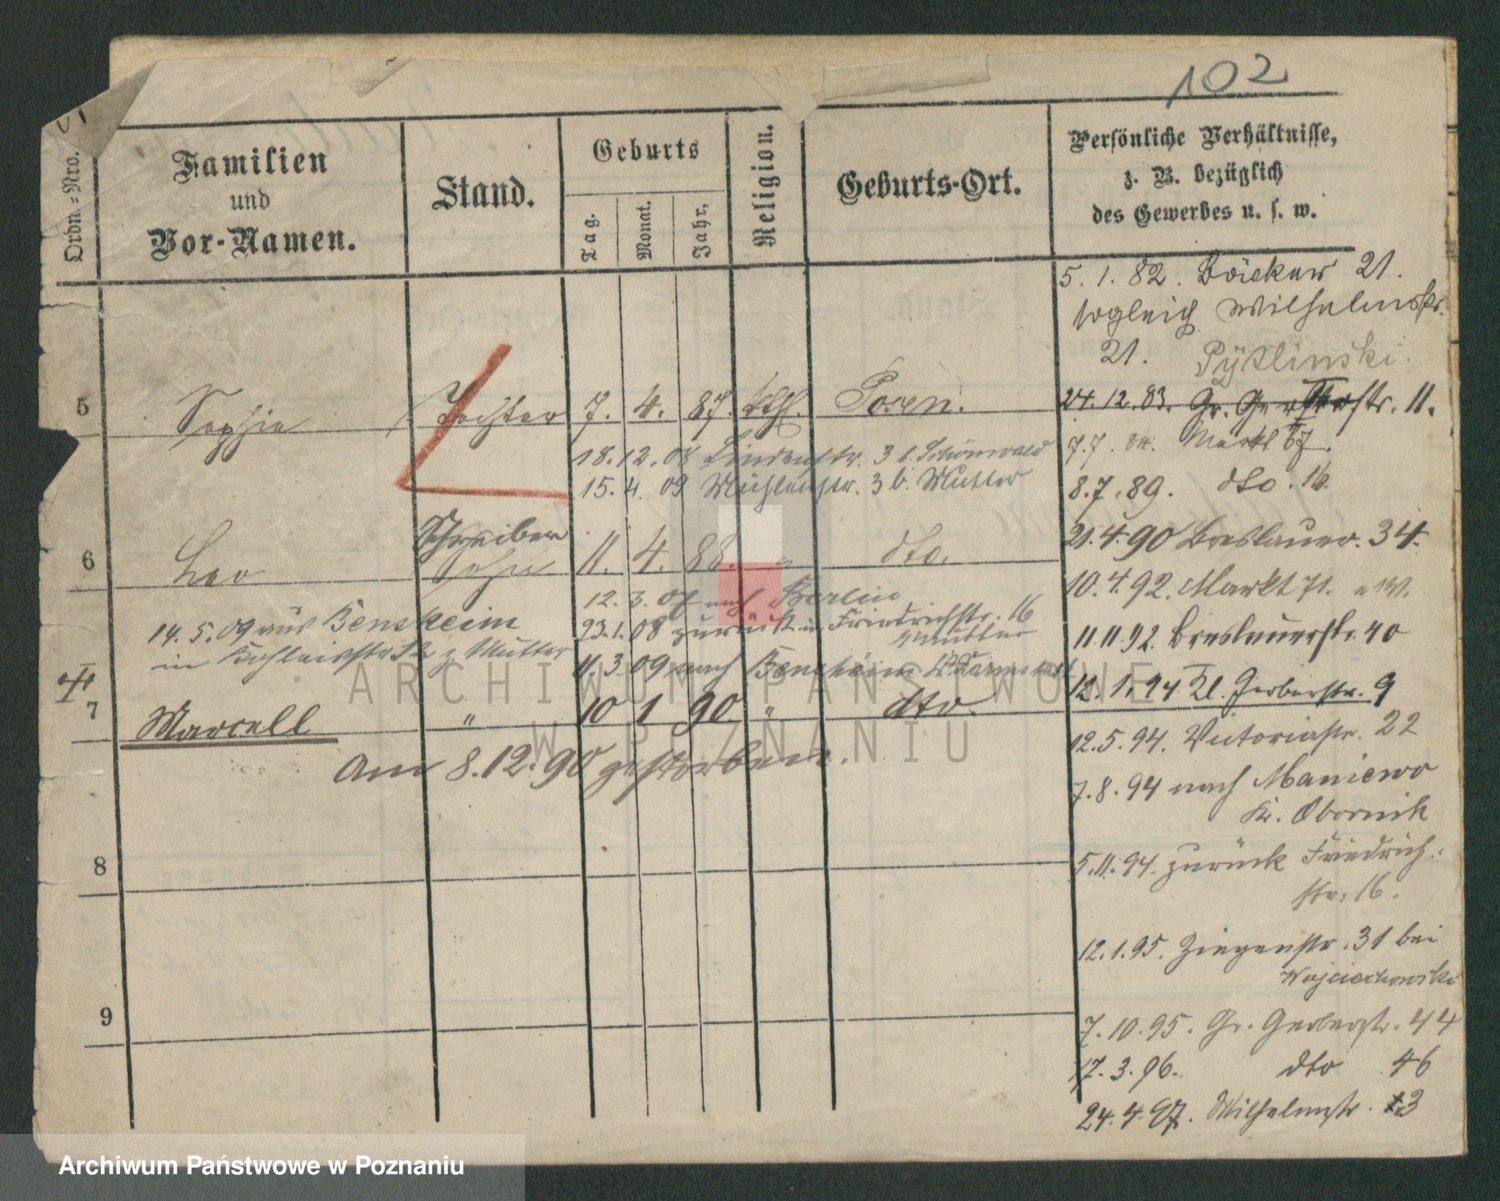 102
Ordn.-Nro.
Familien
und
Vor-Namen.
Stand.
Geburts
Tag.
Monat.
Jahr.
Religion.
Geburts-Ort.
Persönliche Verhältnisse,
z. B. bezüglich
des Gewerbes u. s. w.
5.1.82. Bäcker 21.
sogleich Wilhelmstr.
21. Pÿtlinski.
5 Sophie Tochter 7. 4. 87. kth. Posen.
24.12.83. Gr. Gerberstr. 11.
7.7. 84. Markt 57.
18.12.08 Lindenstr. 3 b. Schönwald
15.4.09 Mühlenstr. 3 b. Mutter
8.7.89. dto. 16.
Schreiber
6 Leo Sohn 11. 4. 88. " dto.
21.4.90 Breslauer. 34.
10.4.92. Markt 71.
12.3.07 nach Berlin
23.1.08 zurück in Friedrichstr. 16
Mutter
14.5.09 aus Bensheim
in z. Mutter
11.3.09 nach Bensheim
11.11.92. Breslauerstr. 40
12.1.94 Kl. Gerberstr. 9
7 Marcell " 10 1 90 " dto.
Am 8.12.90 gestorben.
12.5.94. Victoriastr. 22
7.8.94 nach Maniewo
Kr. Obornik
8
5.11.94. zurück Friedrich-
str. 16.
12.1.95. Ziegenstr. 31 bei
Wojciechowski
9
7.10.95. Gr. Gerberstr. 44
17.3.96. dto 46
24.4.97. Wilhelmstr. 13
ARCHIWUM PAŃSTWOWE
W POZNANIU
Archiwum Państwowe w Poznaniu